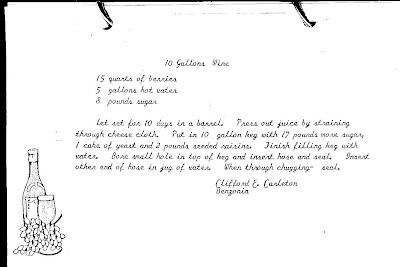 10 Gallons Wine
15 quarts of berries
5 gallons hot water
8 pounds sugar
Let set for 10 days in a barrel. Press out juice by straining
through cheese cloth. Put in 10 gallon keg with 17 pounds more sugar,
1 cake of yeast and 2 pounds seeded raisins. Finish filling keg with
water. Bore small hole in top of keg and insert hose and seal. Insert
other end of hose in jug of water. When through chugging- seal.
Clifford E. Carleton
Benzonia